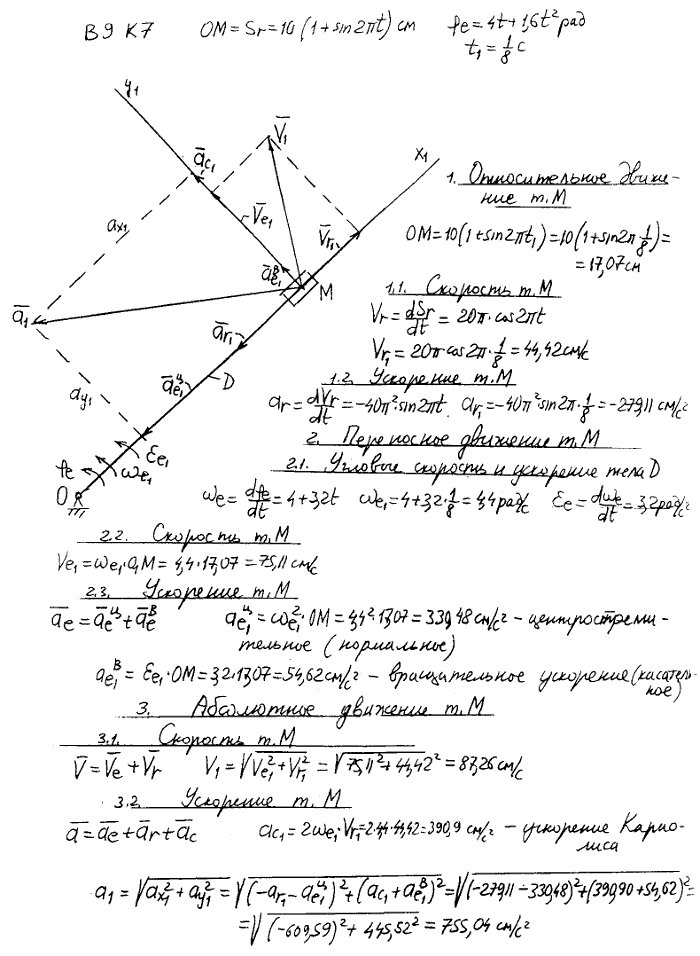 В9 К7 OM = Sr = 10 (1 + sin2πt) см φe = 4t + 1,6t² рад
t₁ = 1/8 с
y₁
V̄₁
āc₁
x₁
ax₁
V̄e₁
V̄r₁
āᴮe₁
M
ā₁
ār₁
āᶣe₁
D
ay₁
εe₁
φe
ωe₁
O
1. Относительное движе-
ние т.М
OM = 10(1 + sin2πt₁) = 10(1 + sin2π 1/8) =
= 17,07 см
1.1. Скорость т.М
Vr = dSr/dt = 20π·cos2πt
Vr₁ = 20π cos2π·1/8 = 44,42 см/с
1.2. Ускорение т.М
ar = dVr/dt = -40π²·sin2πt. ar₁ = -40π²sin2π·1/8 = -279,11 см/с²
2. Переносное движение т.М
2.1. Угловые скорость и ускорение тела D
ωe = dφe/dt = 4 + 3,2t ωe₁ = 4 + 3,2·1/8 = 4,4 рад/с εe = dωe/dt = 3,2 рад/с²
2.2. Скорость т.М
Ve₁ = ωe₁·O₁M = 4,4·17,07 = 75,11 см/с
2.3. Ускорение т.М
āe = āeᶣ + āeᴮ ae₁ᶣ = ωe₁²·OM = 4,4²·17,07 = 330,48 см/с² – центростреми-
тельное (нормальное)
ae₁ᴮ = εe₁·OM = 3,2·17,07 = 54,62 см/с² – вращательное ускорение (касатель-
ное)
3. Абсолютное движение т.М
3.1. Скорость т.М
V̄ = V̄e + V̄r V₁ = √(Ve₁² + Vr₁²) = √(75,11² + 44,42²) = 87,26 см/с
3.2 Ускорение т.М
ā = āe + ār + āc ac₁ = 2ωe₁·Vr₁ = 2·4,4·44,42 = 390,9 см/с² – ускорение Карио-
лиса
a₁ = √(ax₁² + ay₁²) = √((-ar₁ - ae₁ᶣ)² + (ac₁ + ae₁ᴮ)²) = √((-279,11 - 330,48)² + (390,90 + 54,62)²) =
= √((-609,59)² + 445,52²) = 755,04 см/с²